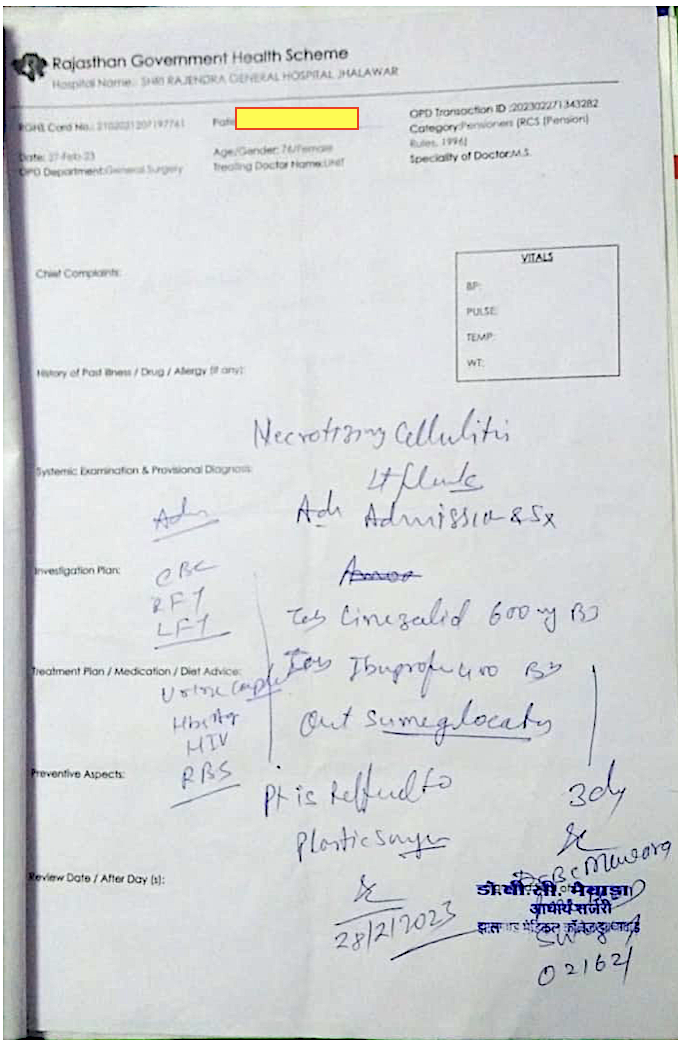 Rajasthan Government Health Scheme
Hospital Name:- SHRI RAJENDRA GENERAL HOSPITAL JHALAWAR
RGHS Card No.:
OPD Transaction ID :202302271343282
Category:Pensioners (RCS (Pension)
Rules, 1996)
Date: 27-Feb-23
Age/Gender: 76/Female
OPD Department:General Surgery
Treating Doctor Name:UNIT
Speciality of Doctor:M.S.
Chief Complaints:
VITALS
BP:
PULSE:
TEMP:
WT:
History of Past Illness / Drug / Allergy (if any):
Necrotizing Cellulitis
Systemic Examination & Provisional Diagnosis:
Adv
Adv Admission & Sx
Investigation Plan:
CBC
RFT
LFT
Tab Linezolid 600 mg BD
Treatment Plan / Medication / Diet Advice:
Tab Ibuprofen 400 BD
Urine Complete
HbsAg
HIV
RBS
Preventive Aspects:
Pt is Reffered to
Plastic Surgeon
3 dy
Review Date / After Day (s):
28/2/2023
डॉ.बी.सी. मेवाड़ा
आचार्य सर्जरी
मेडिकल कॉलेज